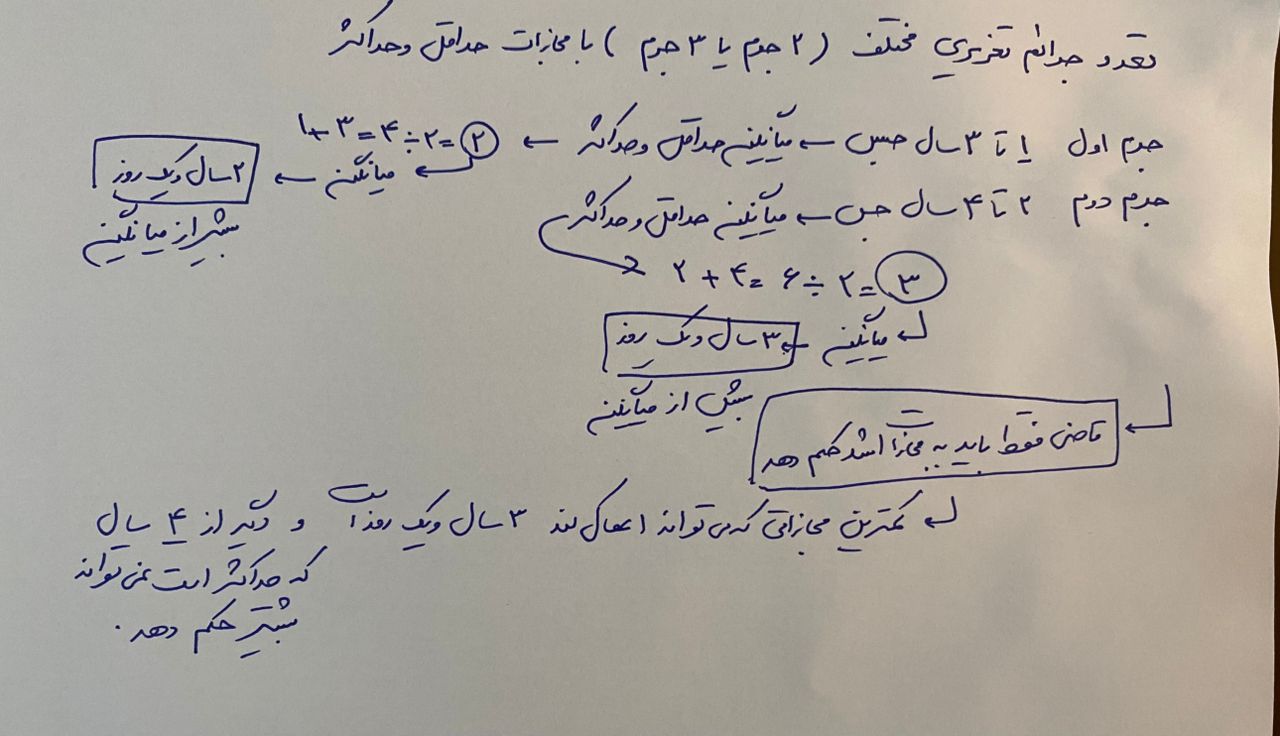 تعدد جرائم تعزیری مختلف (۲ جرم یا ۳ جرم) با مجازات حداقل و حداکثر
جرم اول ۱ تا ۳ سال حبس ← میانگین حداقل و حداکثر ← ۱+۳=۴÷۲=۲
میانگین ← ۲ سال و یک روز
بیش از میانگین
جرم دوم ۲ تا ۴ سال حبس ← میانگین حداقل و حداکثر
۲+۴=۶÷۲=۳
میانگین ← ۳ سال و یک روز
بیش از میانگین
قاضی فقط باید به مجازات اشد حکم دهد
کمترین مجازاتی که می تواند اعمال کند ۳ سال و یک روز است و دیگر از ۴ سال
که حداکثر است نمی تواند
بیشتر حکم دهد.